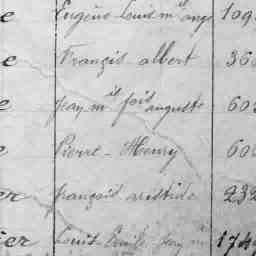 e Eugène Louis m^el ange 109
e François albert 36
e jean m^el fois auguste 60
e Pierre-Henry 60
er françois aristide 232
ier Louis Emile jean m^ie 174